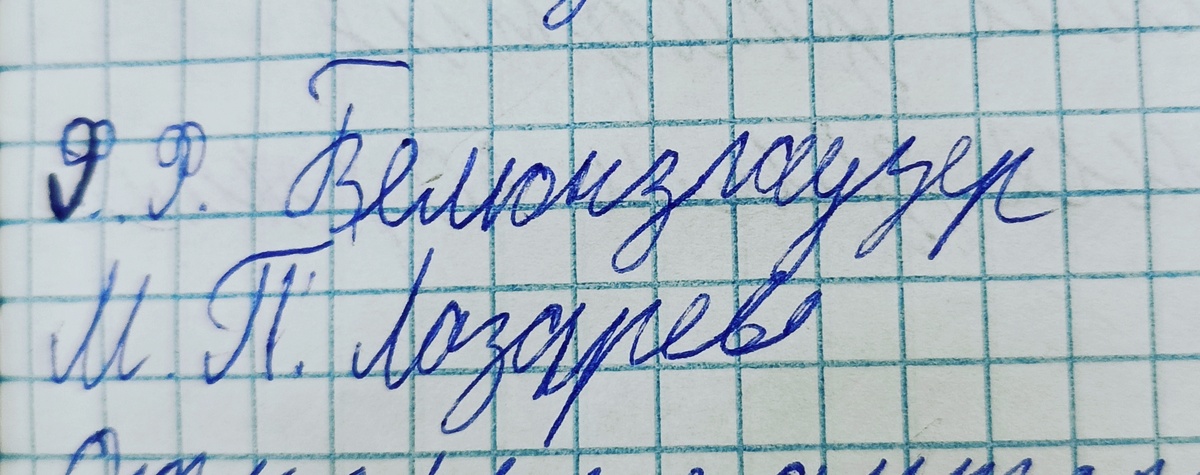 Ф. Ф. Белюнзгаузер
М. П. Лазарев